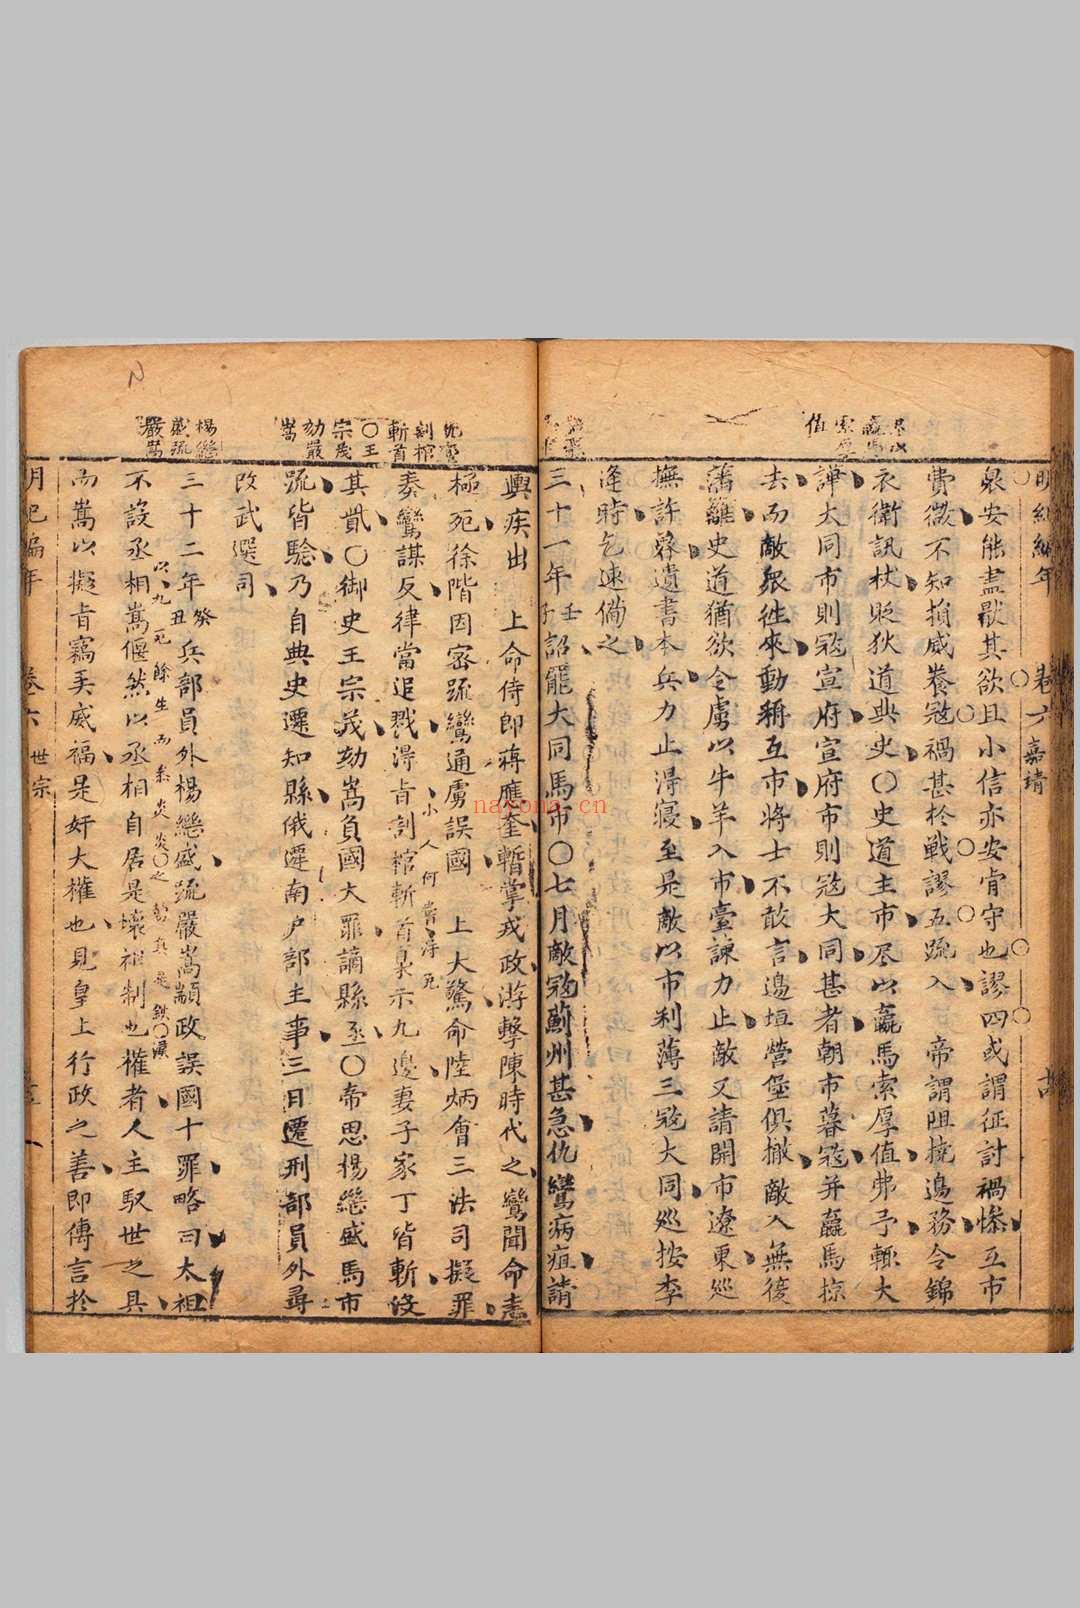 明紀編年 卷六 嘉靖
泉安能盡厭其欲且小信亦安肯守也謬四或謂征討禍慘互市
費微不知損威養寇禍甚於戦謬五疏入 帝謂阻撓邊務令錦
衣衛訊杖貶狄道典史〇史道主市尽以羸馬索厚值弗予輒大
譁大同市則寇宣府宣府市則寇大同甚者朝市暮寇并羸馬掠
去而敵衆徃來動稱互市將士不敢言邊垣營堡俱撤敵入無復
藩籬史道猶欲令虜以牛羊入市臺諫力止敵又請開市遼東廵
撫許蓉遺書本兵力止淂寢至是敵以市利薄三寇大同廵按李
逢時乞速備之
三十一年壬子詔罷大同馬市〇七月敵寇薊州甚急仇鸞病疽請
輿疾出 上命侍郎蔣應奎暫掌戎政游擊陳時代之鸞聞命恚
極死徐階因密疏鸞通虜誤國 上大驚命陸炳會三法司擬罪
奏鸞謀反律當追戮淂旨剖棺斬首梟示九邊妻子家丁皆斬没
小人何嘗淂死
其貲〇御史王宗茂劾嵩負國大罪謫縣丞〇帝思楊繼盛馬市
疏皆驗乃自典史遷知縣俄遷南户部主事三日遷刑部員外尋
改武選司
三十二年癸丑兵部員外楊繼盛疏嚴嵩顓政誤國十罪略曰太祖
以九死餘生而
不設丞相嵩儼然以丞相自居是壞祖制也權者人主馭世之具
而嵩以擬旨竊弄威福是奸大權也見皇上行政之善即傳言於
明紀編年 卷六 世宗
仇鸞剖棺斬首
〇王宗茂劾嚴嵩
楊繼盛疏嚴嵩
naxona.cn